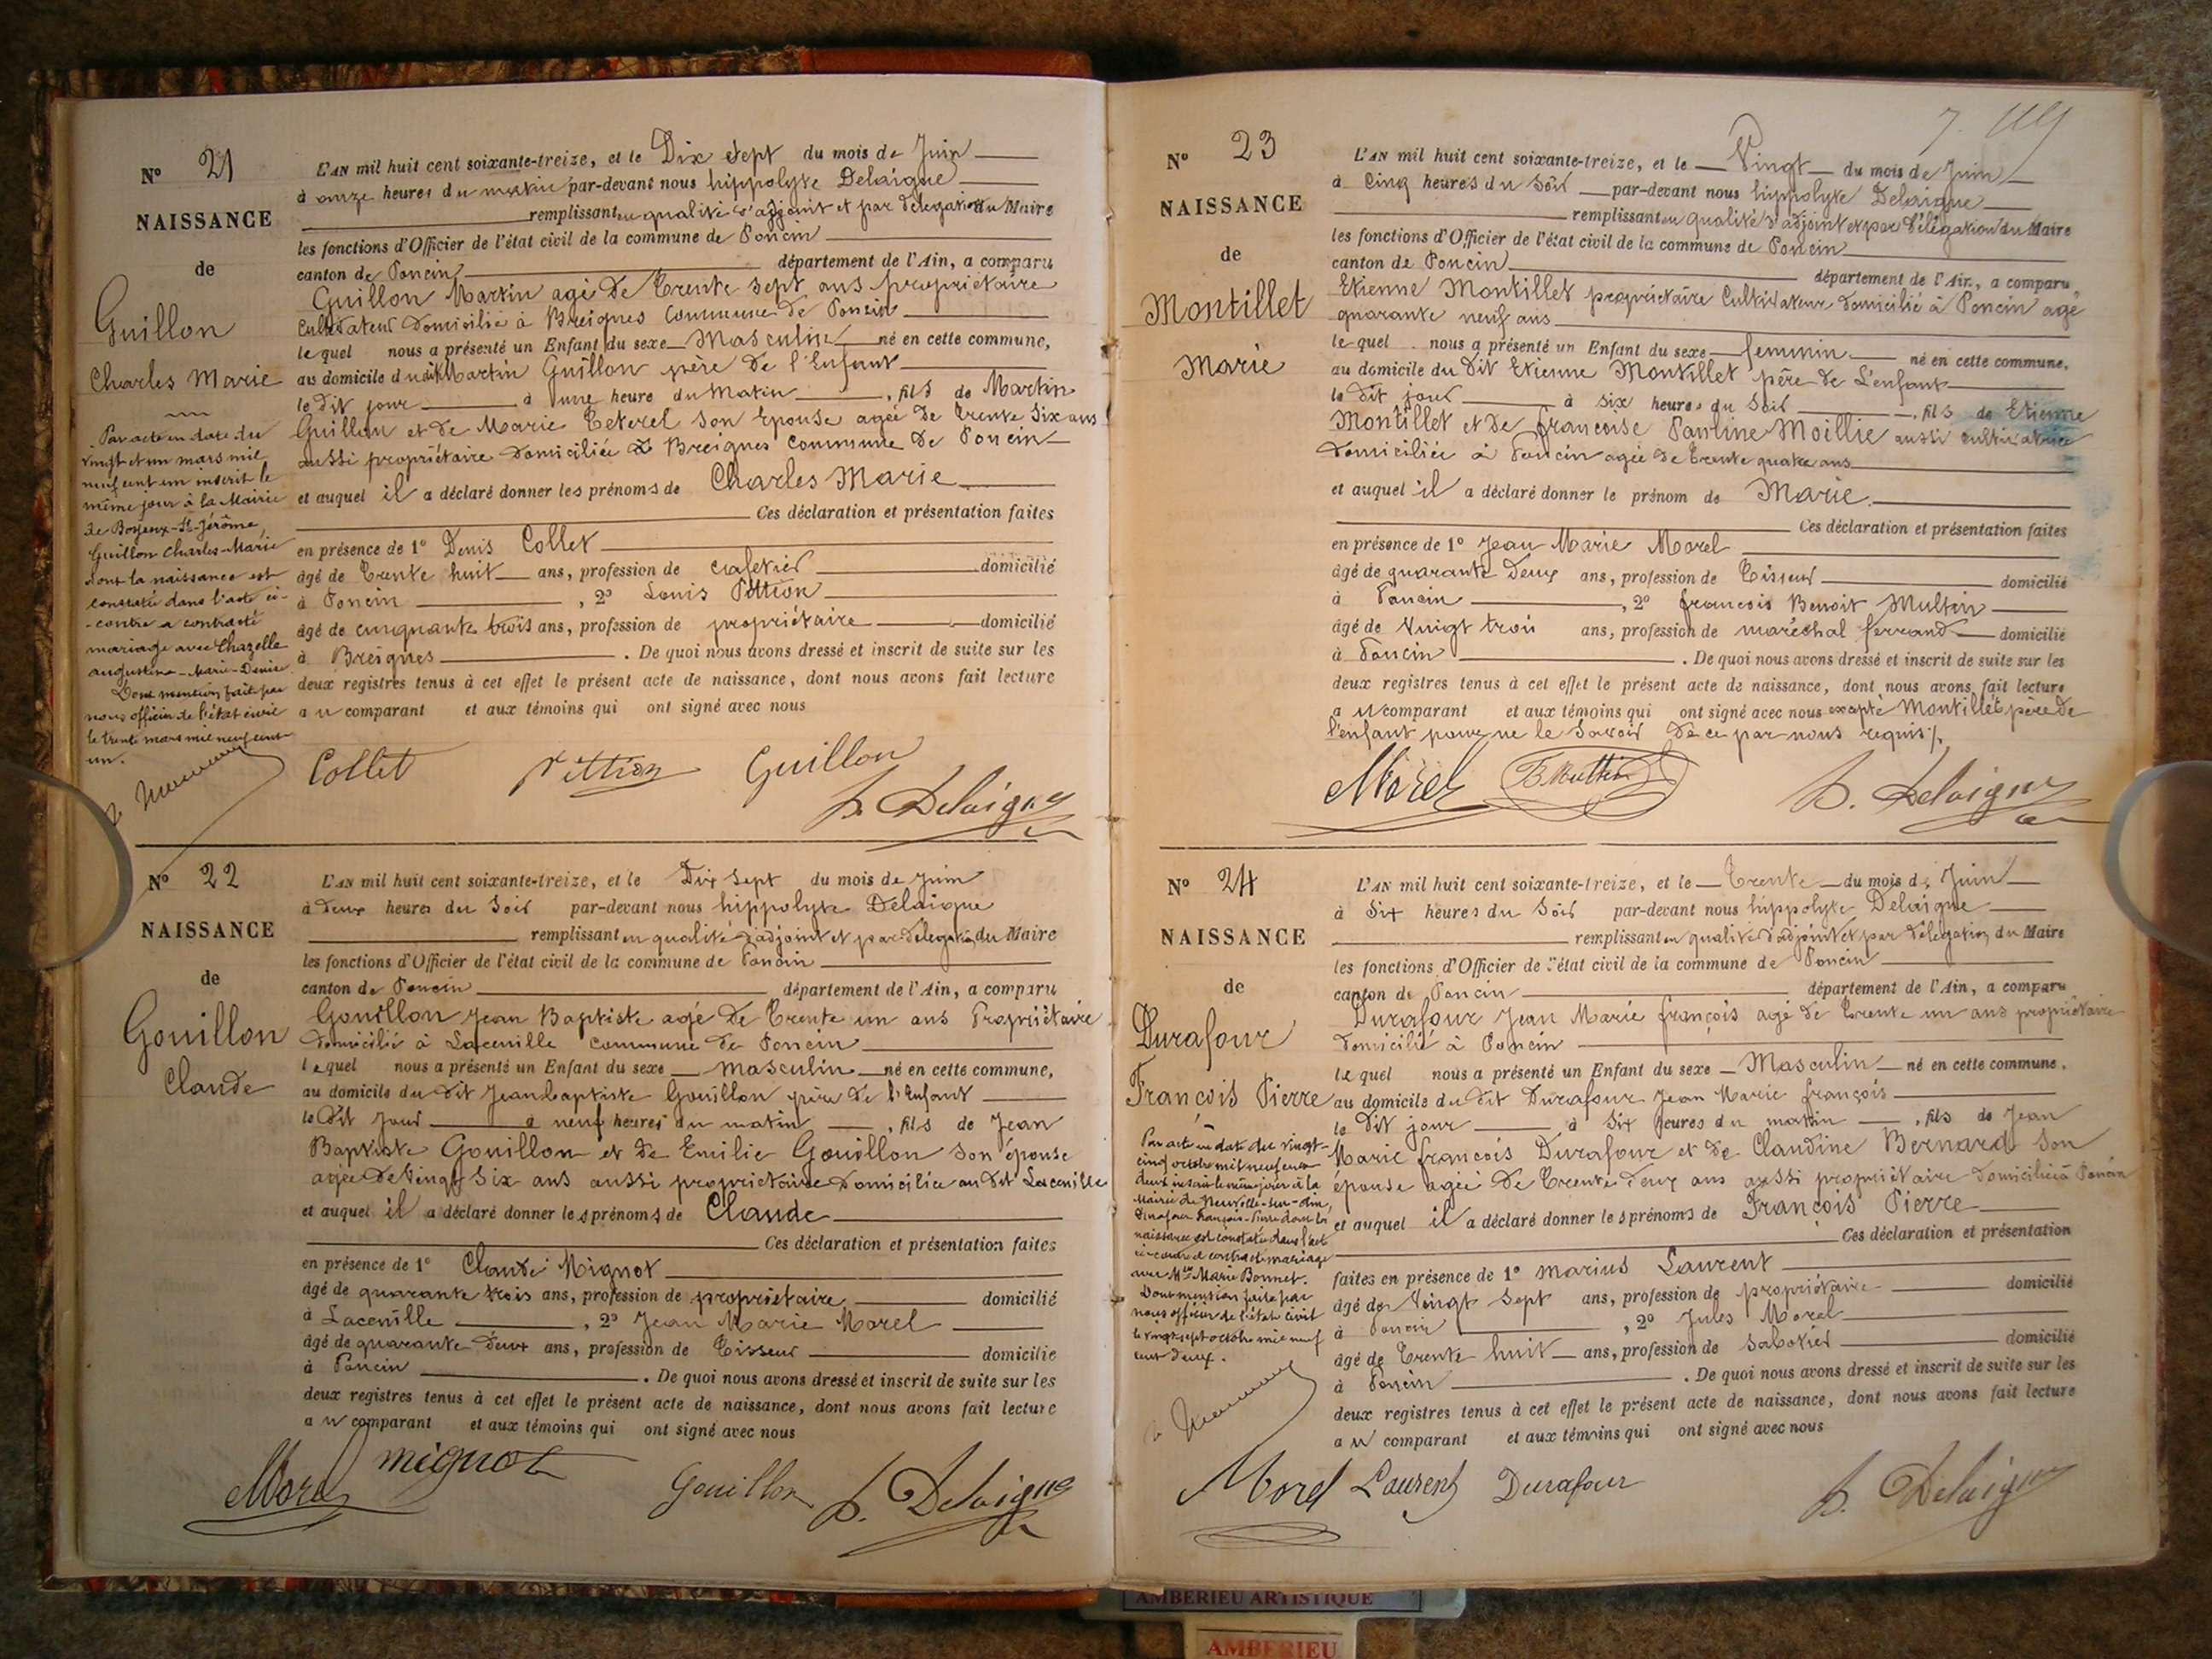 N° 21
NAISSANCE
de
Guillon
Charles Marie
Par acte en date du
vingt et un mars mil
neuf cent un inscrit le
même jour à la Mairie
de Boyeux-St-Jérôme,
Guillon Charles-Marie
dont la naissance est
constatée dans l'acte ci-
-contre a contracté
mariage avec Chazelle
Augustine-Marie-Denise
Dont mention faite par
nous officier de l'état civil
le trente mars mil neuf cent
un.
L'AN mil huit cent soixante-treize, et le Dix sept du mois de Juin
à onze heures du matin par-devant nous hippolyte Delaigue
remplissant en qualité d'adjoint et par délégation du Maire
les fonctions d'Officier de l'état civil de la commune de Poncin
canton de Poncin département de l'Ain, a comparu
Guillon Martin agé de Trente sept ans propriétaire
Cultivateur domicilié à Breignes Commune de Poncin
lequel nous a présenté un Enfant du sexe Masculin né en cette commune,
au domicile du dit Martin Guillon père de l'Enfant
le dit jour à une heure du Matin, fils de Martin
Guillon et de Marie Teterel son Epouse agée de trente Six ans
aussi propriétaire domiciliée à Breignes Commune de Poncin
et auquel il a déclaré donner les prénoms de Charles Marie
Ces déclaration et présentation faites
en présence de 1° Denis Collet
âgé de Trente huit ans, profession de cafetier domicilié
à Poncin, 2° Louis Pittion
âgé de cinquante trois ans, profession de propriétaire domicilié
à Breignes. De quoi nous avons dressé et inscrit de suite sur les
deux registres tenus à cet effet le présent acte de naissance, dont nous avons fait lecture
au comparant et aux témoins qui ont signé avec nous
Collet Pittion Guillon
h. Delaigue
N° 22
NAISSANCE
de
Gouillon
Claude
L'AN mil huit cent soixante-treize, et le Dix sept du mois de Juin
à deux heures du Soir par-devant nous hippolyte Delaigue
remplissant en qualité d'adjoint et par délégation du Maire
les fonctions d'Officier de l'état civil de la commune de Poncin
canton de Poncin département de l'Ain, a comparu
Gouillon Jean Baptiste agé de Trente un ans Propriétaire
domicilié à Lacenille Commune de Poncin
lequel nous a présenté un Enfant du sexe masculin né en cette commune,
au domicile du dit Jean baptiste Gouillon père de l'Enfant
le Dit jour à neuf heures du matin, fils de Jean
Baptiste Gouillon et de Emilie Gouillon son épouse
agée de Vingt Six ans aussi propriétaire domiciliée au dit Lacenille
et auquel il a déclaré donner les prénoms de Claude
Ces déclaration et présentation faites
en présence de 1° Claude Mignot
âgé de quarante trois ans, profession de propriétaire domicilié
à Lacenille, 2° Jean Marie Morel
âgé de quarante deux ans, profession de Tisseur domicilié
à Poncin. De quoi nous avons dressé et inscrit de suite sur les
deux registres tenus à cet effet le présent acte de naissance, dont nous avons fait lecture
au comparant et aux témoins qui ont signé avec nous
Morel mignot Gouillon h. Delaigue
N° 23
NAISSANCE
de
Montillet
Marie
L'AN mil huit cent soixante-treize, et le Vingt du mois de Juin
à Cinq heures du Soir par-devant nous hippolyte Delaigue
remplissant en qualité d'adjoint et par délégation du Maire
les fonctions d'Officier de l'état civil de la commune de Poncin
canton de Poncin département de l'Ain, a comparu
Etienne Montillet propriétaire Cultivateur domicilié à Poncin agé
quarante neuf ans
lequel nous a présenté un Enfant du sexe feminin né en cette commune,
au domicile du dit Etienne Montillet père de L'enfant
le dit jour à six heures du Soir, fils de Etienne
Montillet et de françoise Pauline Moillie aussi cultivatrice
domiciliée à Poncin agée de trente quatre ans
et auquel il a déclaré donner le prénom de Marie
Ces déclaration et présentation faites
en présence de 1° Jean Marie Morel
âgé de quarante Deux ans, profession de Tisseur domicilié
à Poncin, 2° francois Benoit Multin
âgé de Vuigt trois ans, profession de maréchal ferrand domicilié
à Poncin. De quoi nous avons dressé et inscrit de suite sur les
deux registres tenus à cet effet le présent acte de naissance, dont nous avons fait lecture
au comparant et aux témoins qui ont signé avec nous excepté Montillet père de
l'enfant pour ne le Savoir de ce par nous requis
Morel B. Multin h. Delaigue
N° 24
NAISSANCE
de
Durafour
François Pierre
Par acte en date du vingt-
cinq octobre mil neuf cent
deux inscrit le même jour à la
Mairie de Neuville-sur-Ain,
Durafour François-Pierre dont la
naissance est constatée dans l'acte
ci-contre a contracté mariage
avec Mlle Marie Bonnet.
Dont mention faite par
nous officier de l'état civil
le vingt sept octobre mil neuf
cent deux.
L'AN mil huit cent soixante-treize, et le Trente du mois de Juin
à Six heures du Soir par-devant nous hippolyte Delaigue
remplissant en qualité d'adjoint et par délégation du Maire
les fonctions d'Officier de l'état civil de la commune de Poncin
canton de Poncin département de l'Ain, a comparu
Durafour Jean Marie françois agé de Trente un ans propriétaire
domicilié à Poncin
lequel nous a présenté un Enfant du sexe Masculin né en cette commune,
au domicile du dit Durafour Jean Marie françois
le dit jour à Six heures du matin, fils de Jean
Marie francois Durafour et de Claudine Bernard son
épouse agée de Trente deux ans aussi propriétaire domiciliée à Poncin
et auquel il a déclaré donner les prénoms de François Pierre
Ces déclaration et présentation
faites en présence de 1° Marius Laurent
âgé de Vingt Sept ans, profession de propriétaire domicilié
à Poncin, 2° Jules Morel
âgé de Trente huit ans, profession de Sabotier domicilié
à Poncin. De quoi nous avons dressé et inscrit de suite sur les
deux registres tenus à cet effet le présent acte de naissance, dont nous avons fait lecture
au comparant et aux témoins qui ont signé avec nous
Morel Laurent Durafour h. Delaigue
AMBERIEU ARTISTIQUE
AMBERIEU